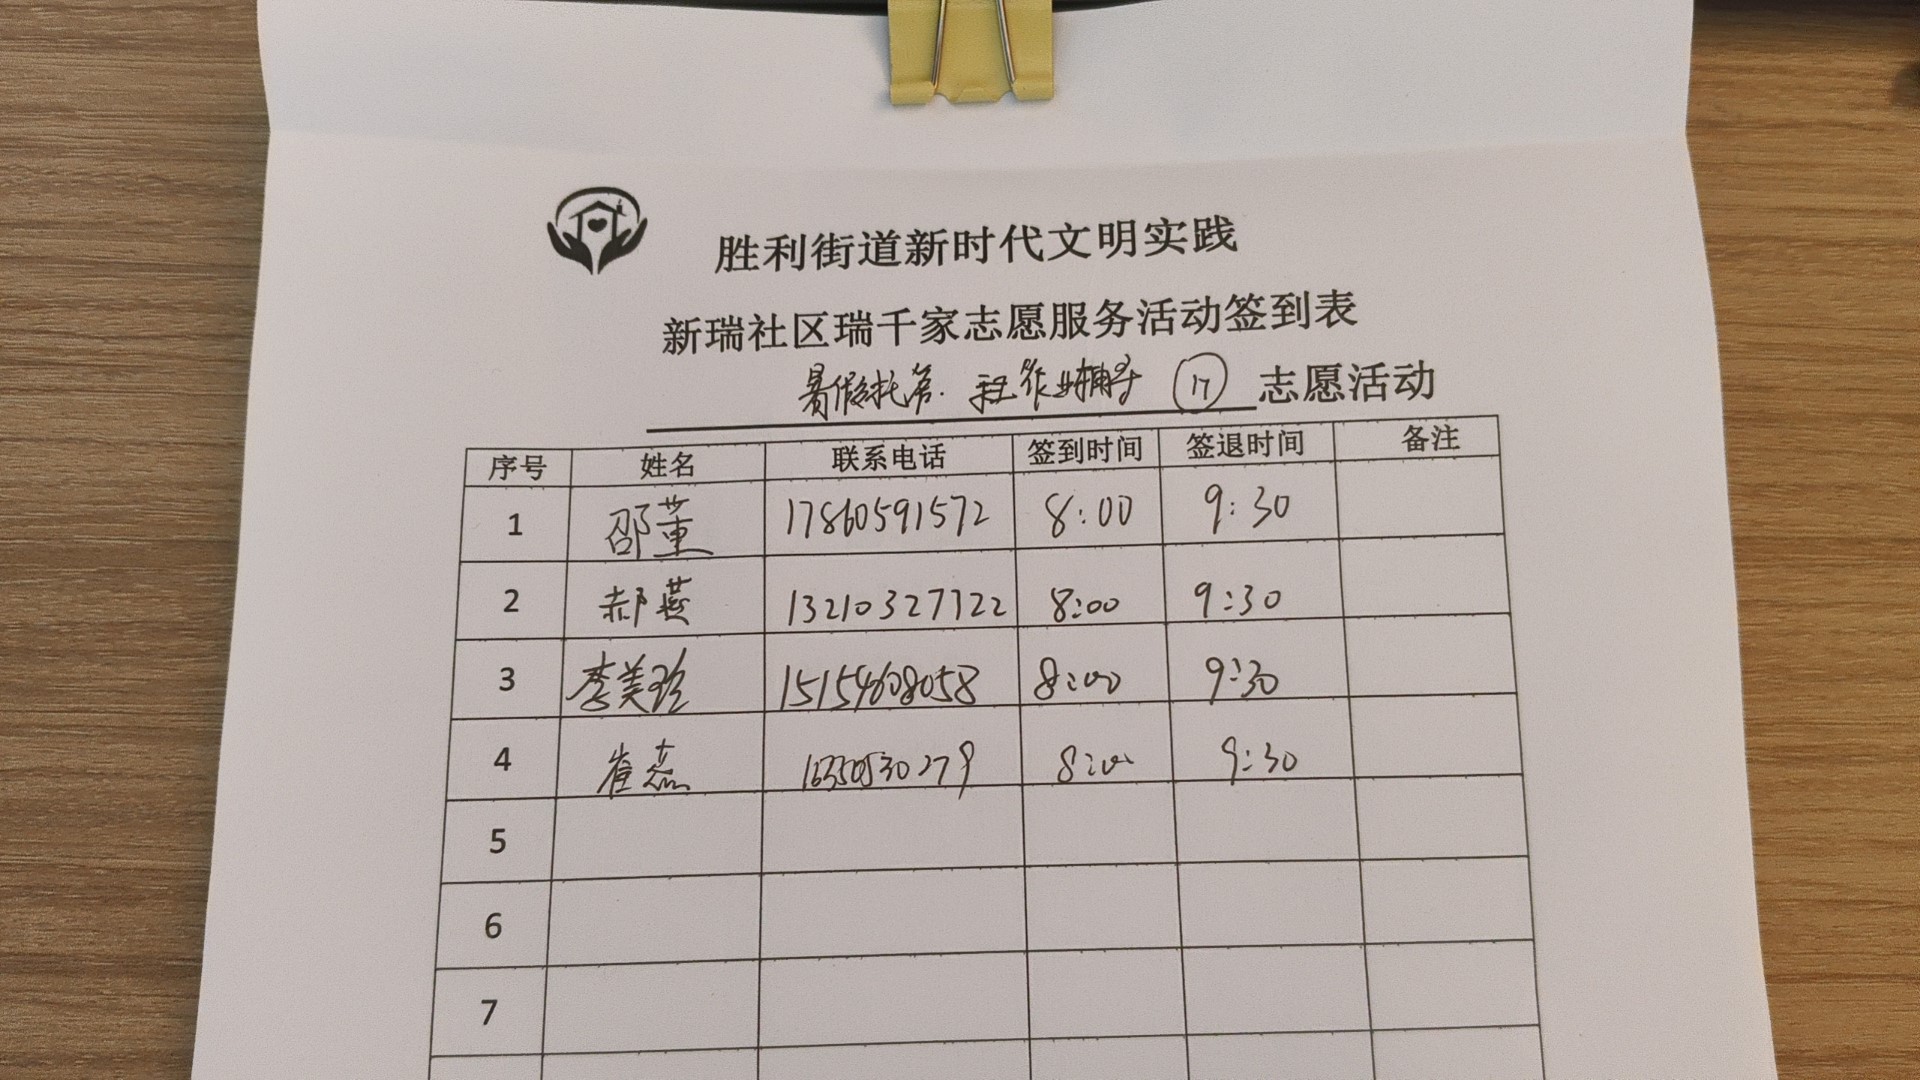 胜利街道新时代文明实践
新瑞社区瑞千家志愿服务活动签到表
暑假托管. 作业辅导 ⑰ 志愿活动
序号 姓名 联系电话 签到时间 签退时间 备注
1 邵董 17860591572 8:00 9:30
2 郝燕 13210327122 8:00 9:30
3 李美玲 15154608058 8:00 9:30
4 崔蕊 8:00 9:30
5
6
7